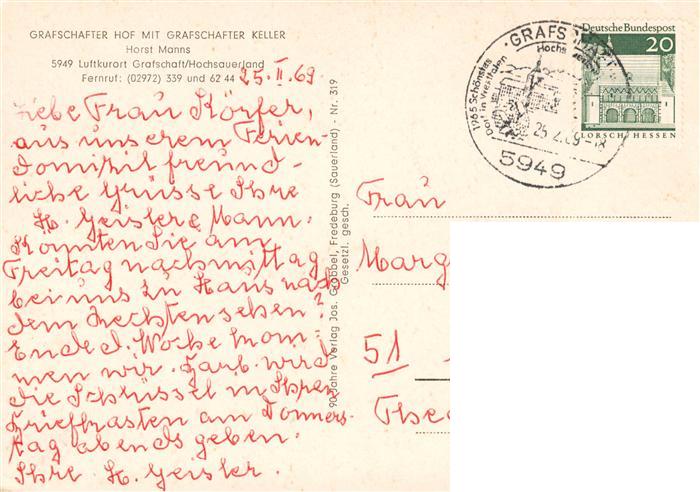 GRAFSCHAFTER HOF MIT GRAFSCHAFTER KELLER
Horst Manns
5949 Luftkurort Grafschaft/Hochsauerland
Fernruf: (02972) 339 und 62 44
25. II. 69.
Liebe Frau Körfer,
aus unserem Ferien-
domizil freund-
liche Grüsse Ihre
H. Geisler & Mann.
Könnten Sie am
Freitag nachmittag
bei uns zu Haus nach
dem Rechten sehen?
Ende d. Woche kom-
men wir. Harb. wird
die Schlüssel in Ihren
Briefkasten am Donners-
tag abends geben.
Ihre H. Geisler.
90 Jahre Verlag Jos. Grobbel, Fredeburg (Sauerland) - Nr. 319
Gesetzl. gesch.
GRAFSCHAFT
Hochsauerland
1965 Schönstes
Dorf in Westfalen
25.2.69-18
5949
Deutsche Bundespost
20
LORSCH/HESSEN
Frau
Marg
51